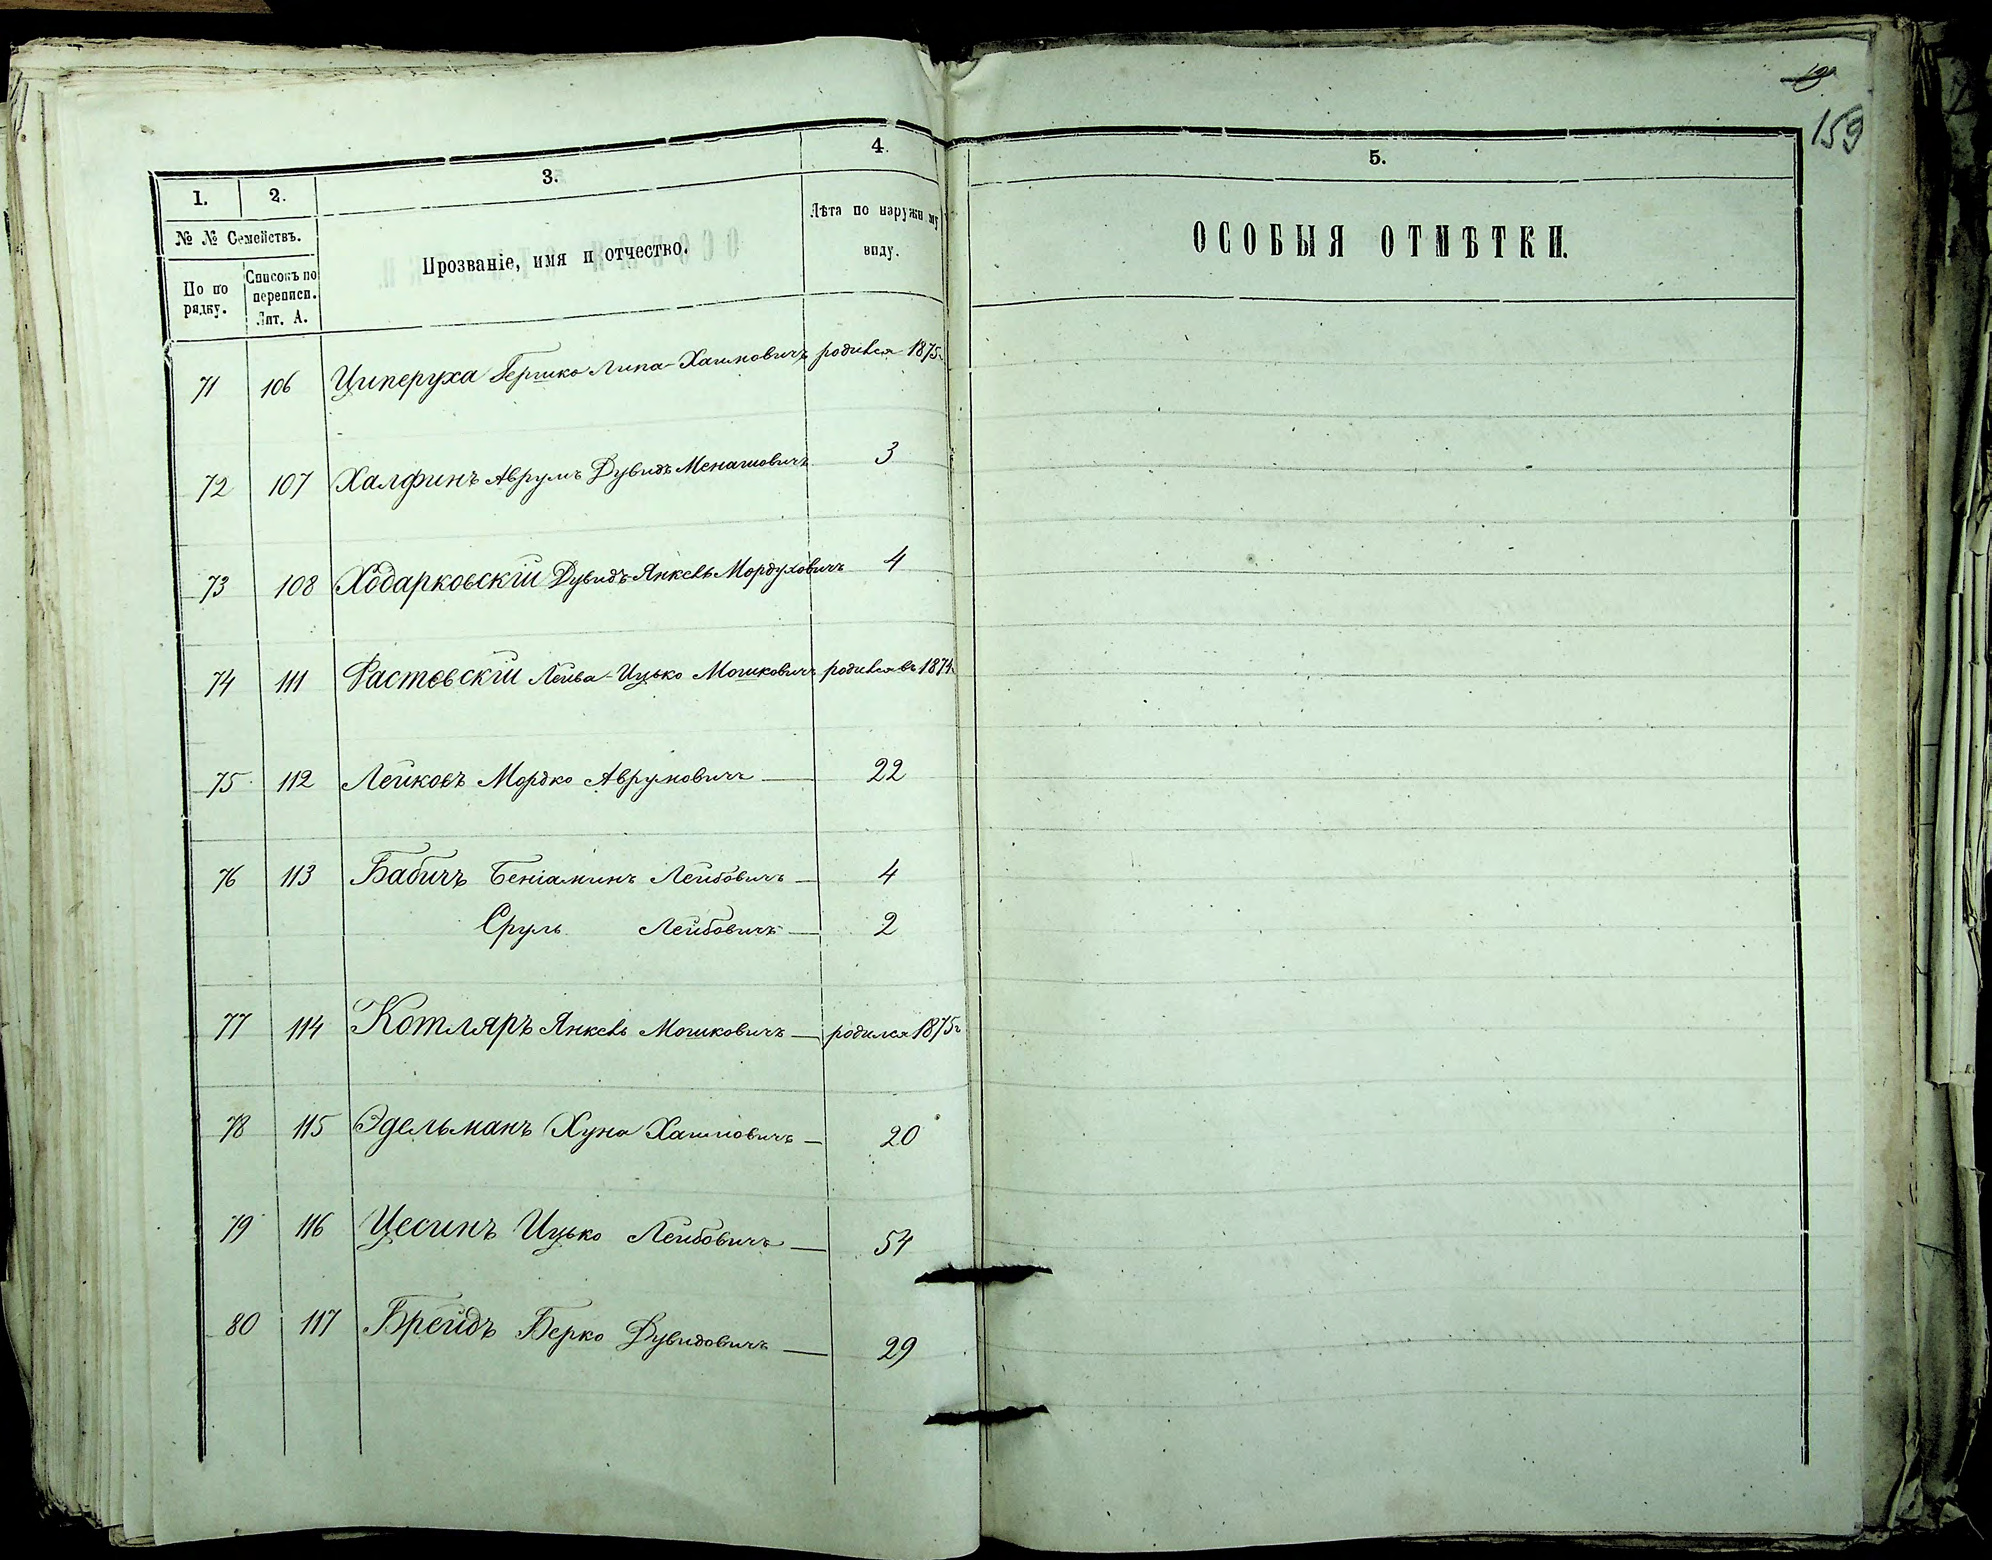 159
1. 2. 3. 4. 5.
№ № Семействъ.
По по
рядку.
Списокъ по
переписи.
Лит. А.
Прозваніе, имя и отчество.
Лѣта по наружному
виду.
ОСОБЫЯ ОТМѢТКИ.
71 106 Циперуха Гершко Липа-Хаимовичъ родился 1875г
72 107 Халфинъ Аврумъ Дувидъ Менашовичъ 3
73 108 Ходарковскій Дувидъ-Янкель Мордуховичъ 4
74 111 Фастовскій Лейба-Ицько Мошковичъ родился въ 1874г
75 112 Лейковъ Мордко Аврумовичъ — 22
76 113 Бабичъ Беніаминъ Лейбовичъ — 4
Сруль Лейбовичъ — 2
77 114 Котляръ Янкель Мошковичъ — родился 1875г
78 115 Эдельманъ Хуна Хаимовичъ — 20
79 116 Цесинъ Ицько Лейбовичъ — 54
80 117 Брейдъ Берко Дувидовичъ — 29